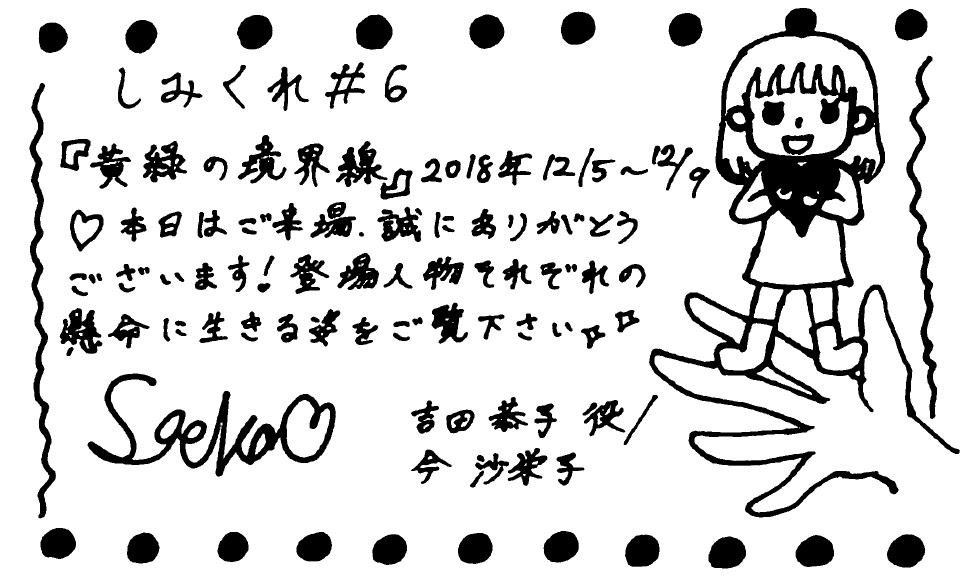 しみくれ#6
『黄緑の境界線』2018年12/5~12/9
♡本日はご来場、誠にありがとう
ございます!登場人物それぞれの
懸命に生きる姿をご覧下さい。
Saeko♡
吉田恭子 役/
今 沙栄子